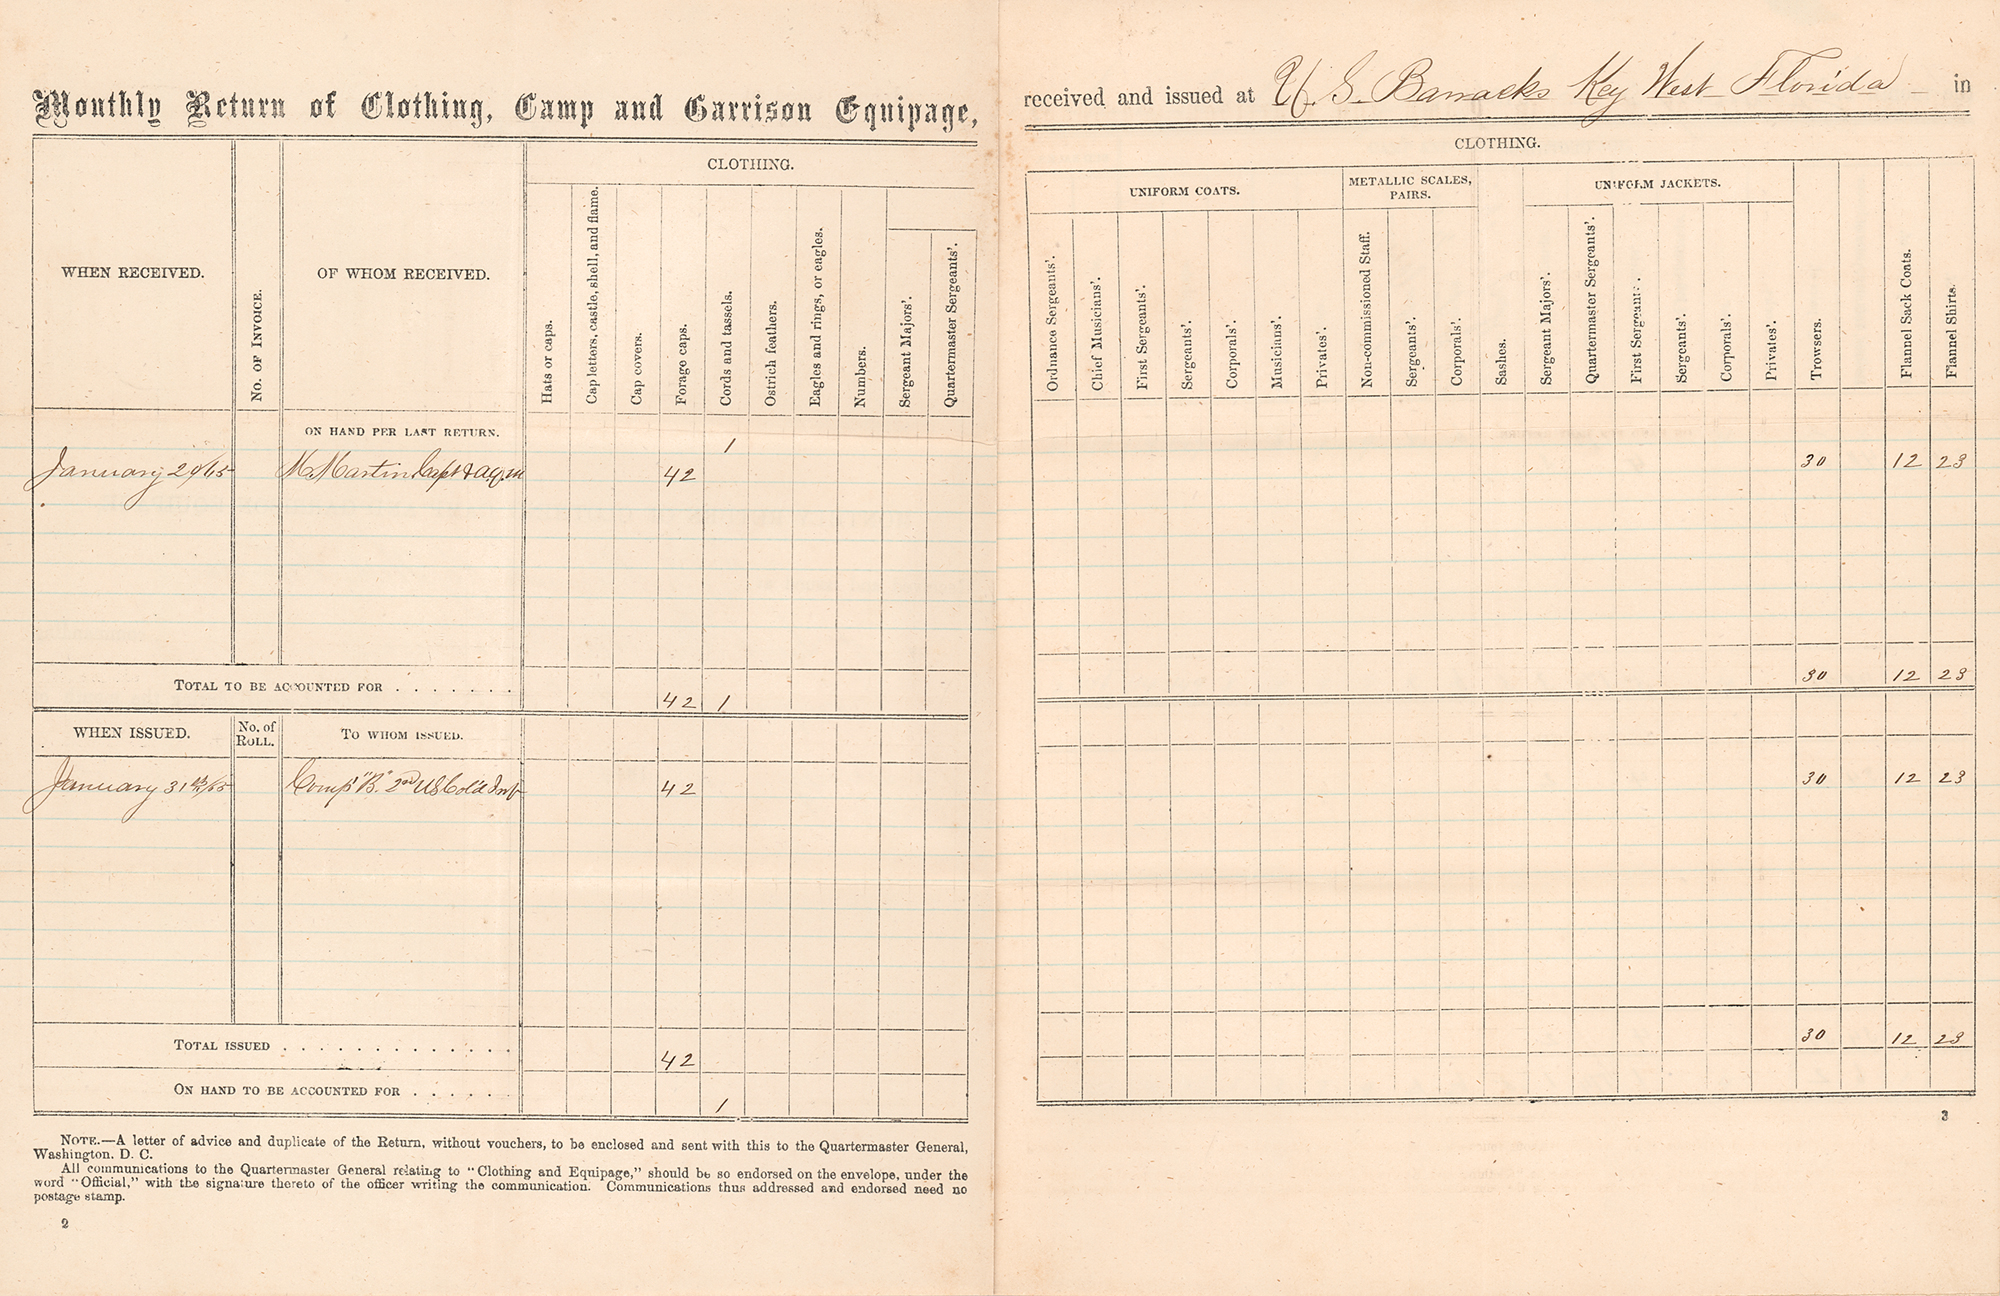 Monthly Return of Clothing, Camp and Garrison Equipage, received and issued at U.S. Barracks Key West Florida in
CLOTHING.
CLOTHING.
UNIFORM COATS.
METALLIC SCALES, PAIRS.
UNIFORM JACKETS.
WHEN RECEIVED.
No. OF INVOICE.
OF WHOM RECEIVED.
Hats or caps.
Cap letters, castle, shell, and flame.
Cap covers.
Forage caps.
Cords and tassels.
Ostrich feathers.
Eagles and rings, or eagles.
Numbers.
Sergeant Majors'.
Quartermaster Sergeants'.
Ordnance Sergeants'.
Chief Musicians'.
First Sergeants'.
Sergeants'.
Corporals'.
Musicians'.
Privates'.
Non-commissioned Staff.
Sergeants'.
Corporals'.
Sashes.
Sergeant Majors'.
Quartermaster Sergeants'.
First Sergeants'.
Sergeants'.
Corporals'.
Privates'.
Trowsers.
Flannel Sack Coats.
Flannel Shirts.
ON HAND PER LAST RETURN. 1
January 29/65 M Martin Capt & a.q.m 42 30 12 23
TOTAL TO BE ACCOUNTED FOR . . . . . . . 42 1 30 12 23
WHEN ISSUED. No. of ROLL. To WHOM ISSUED.
January 31st/65 Comp "B" 2nd US Cold Inf 42 30 12 23
TOTAL ISSUED . . . . . . . . . . . . . 42 30 12 23
ON HAND TO BE ACCOUNTED FOR . . . . . . 1
NOTE.—A letter of advice and duplicate of the Return, without vouchers, to be enclosed and sent with this to the Quartermaster General,
Washington. D. C.
All communications to the Quartermaster General relating to "Clothing and Equipage," should be so endorsed on the envelope, under the
word "Official," with the signature thereto of the officer writing the communication. Communications thus addressed and endorsed need no
postage stamp.
2
3